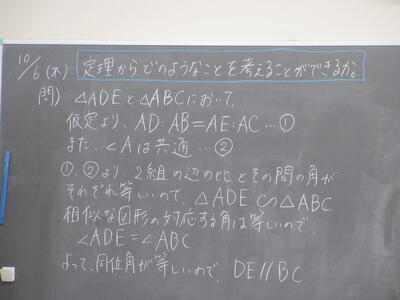 10/6(木) 定理からどのようなことを考えることができるか。
問) △ADEと△ABCにおいて,
仮定より, AD:AB=AE:AC…①
また, ∠Aは共通…②
①,②より, 2組の辺の比とその間の角が
それぞれ等しいので, △ADE∽△ABC
相似な図形の対応する角は等しいので,
∠ADE=∠ABC
よって, 同位角が等しいので, DE//BC